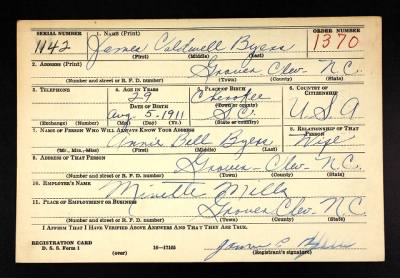 SERIAL NUMBER 1. NAME (Print) ORDER NUMBER
1142 James Caldwell Byers 1370
(First) (Middle) (Last)
2. ADDRESS (Print)
Grover Clev. N.C.
(Number and street or R. F. D. number) (Town) (County) (State)
3. TELEPHONE 4. AGE IN YEARS 5. PLACE OF BIRTH 6. COUNTRY OF CITIZENSHIP
29 Cherokee
DATE OF BIRTH (Town or county)
Aug. 5-1911 S.C. U.S.A
(Exchange) (Number) (Mo.) (Day) (Yr.) (State or country)
7. NAME OF PERSON WHO WILL ALWAYS KNOW YOUR ADDRESS 8. RELATIONSHIP OF THAT PERSON
Annie Bell Byers Wife
(Mr., Mrs., Miss) (First) (Middle) (Last)
9. ADDRESS OF THAT PERSON
Grover Clev. N.C.
(Number and street or R. F. D. number) (Town) (County) (State)
10. EMPLOYER'S NAME
Minette Mills
11. PLACE OF EMPLOYMENT OR BUSINESS
Grover Clev. N.C.
(Number and street or R. F. D. number) (Town) (County) (State)
I AFFIRM THAT I HAVE VERIFIED ABOVE ANSWERS AND THAT THEY ARE TRUE.
REGISTRATION CARD
D. S. S. Form 1 (over) 16-17105 James C Byers
(Registrant's signature)